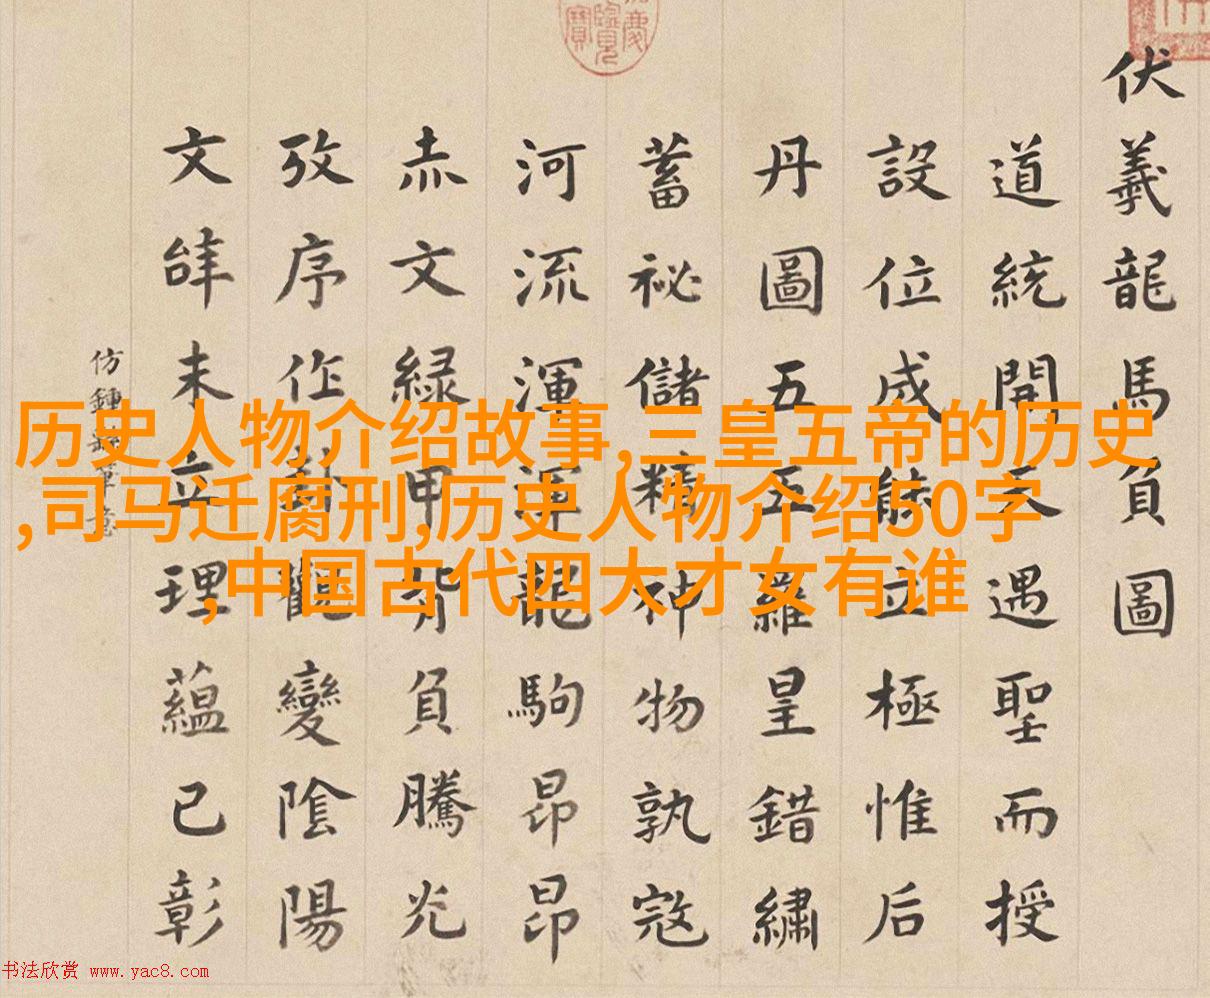 伏羲龍馬負圖
道統開天遇聖而授
設位成能立極惟后
丹圖五羅皇錯繡
蓄祕儲精神物孰寇
河流渾渾龍駒昂昂
赤文緑甲背負騰光
攷序作卦觀變陰陽
文未立理蘊已彰
仿鍾繇筆意
慶覽寶
历史人物介绍故事,三皇五帝的历史
,司马迁腐刑,历史人物介绍50字
,中国古代四大才女有谁
书法欣赏 www.yac8.com